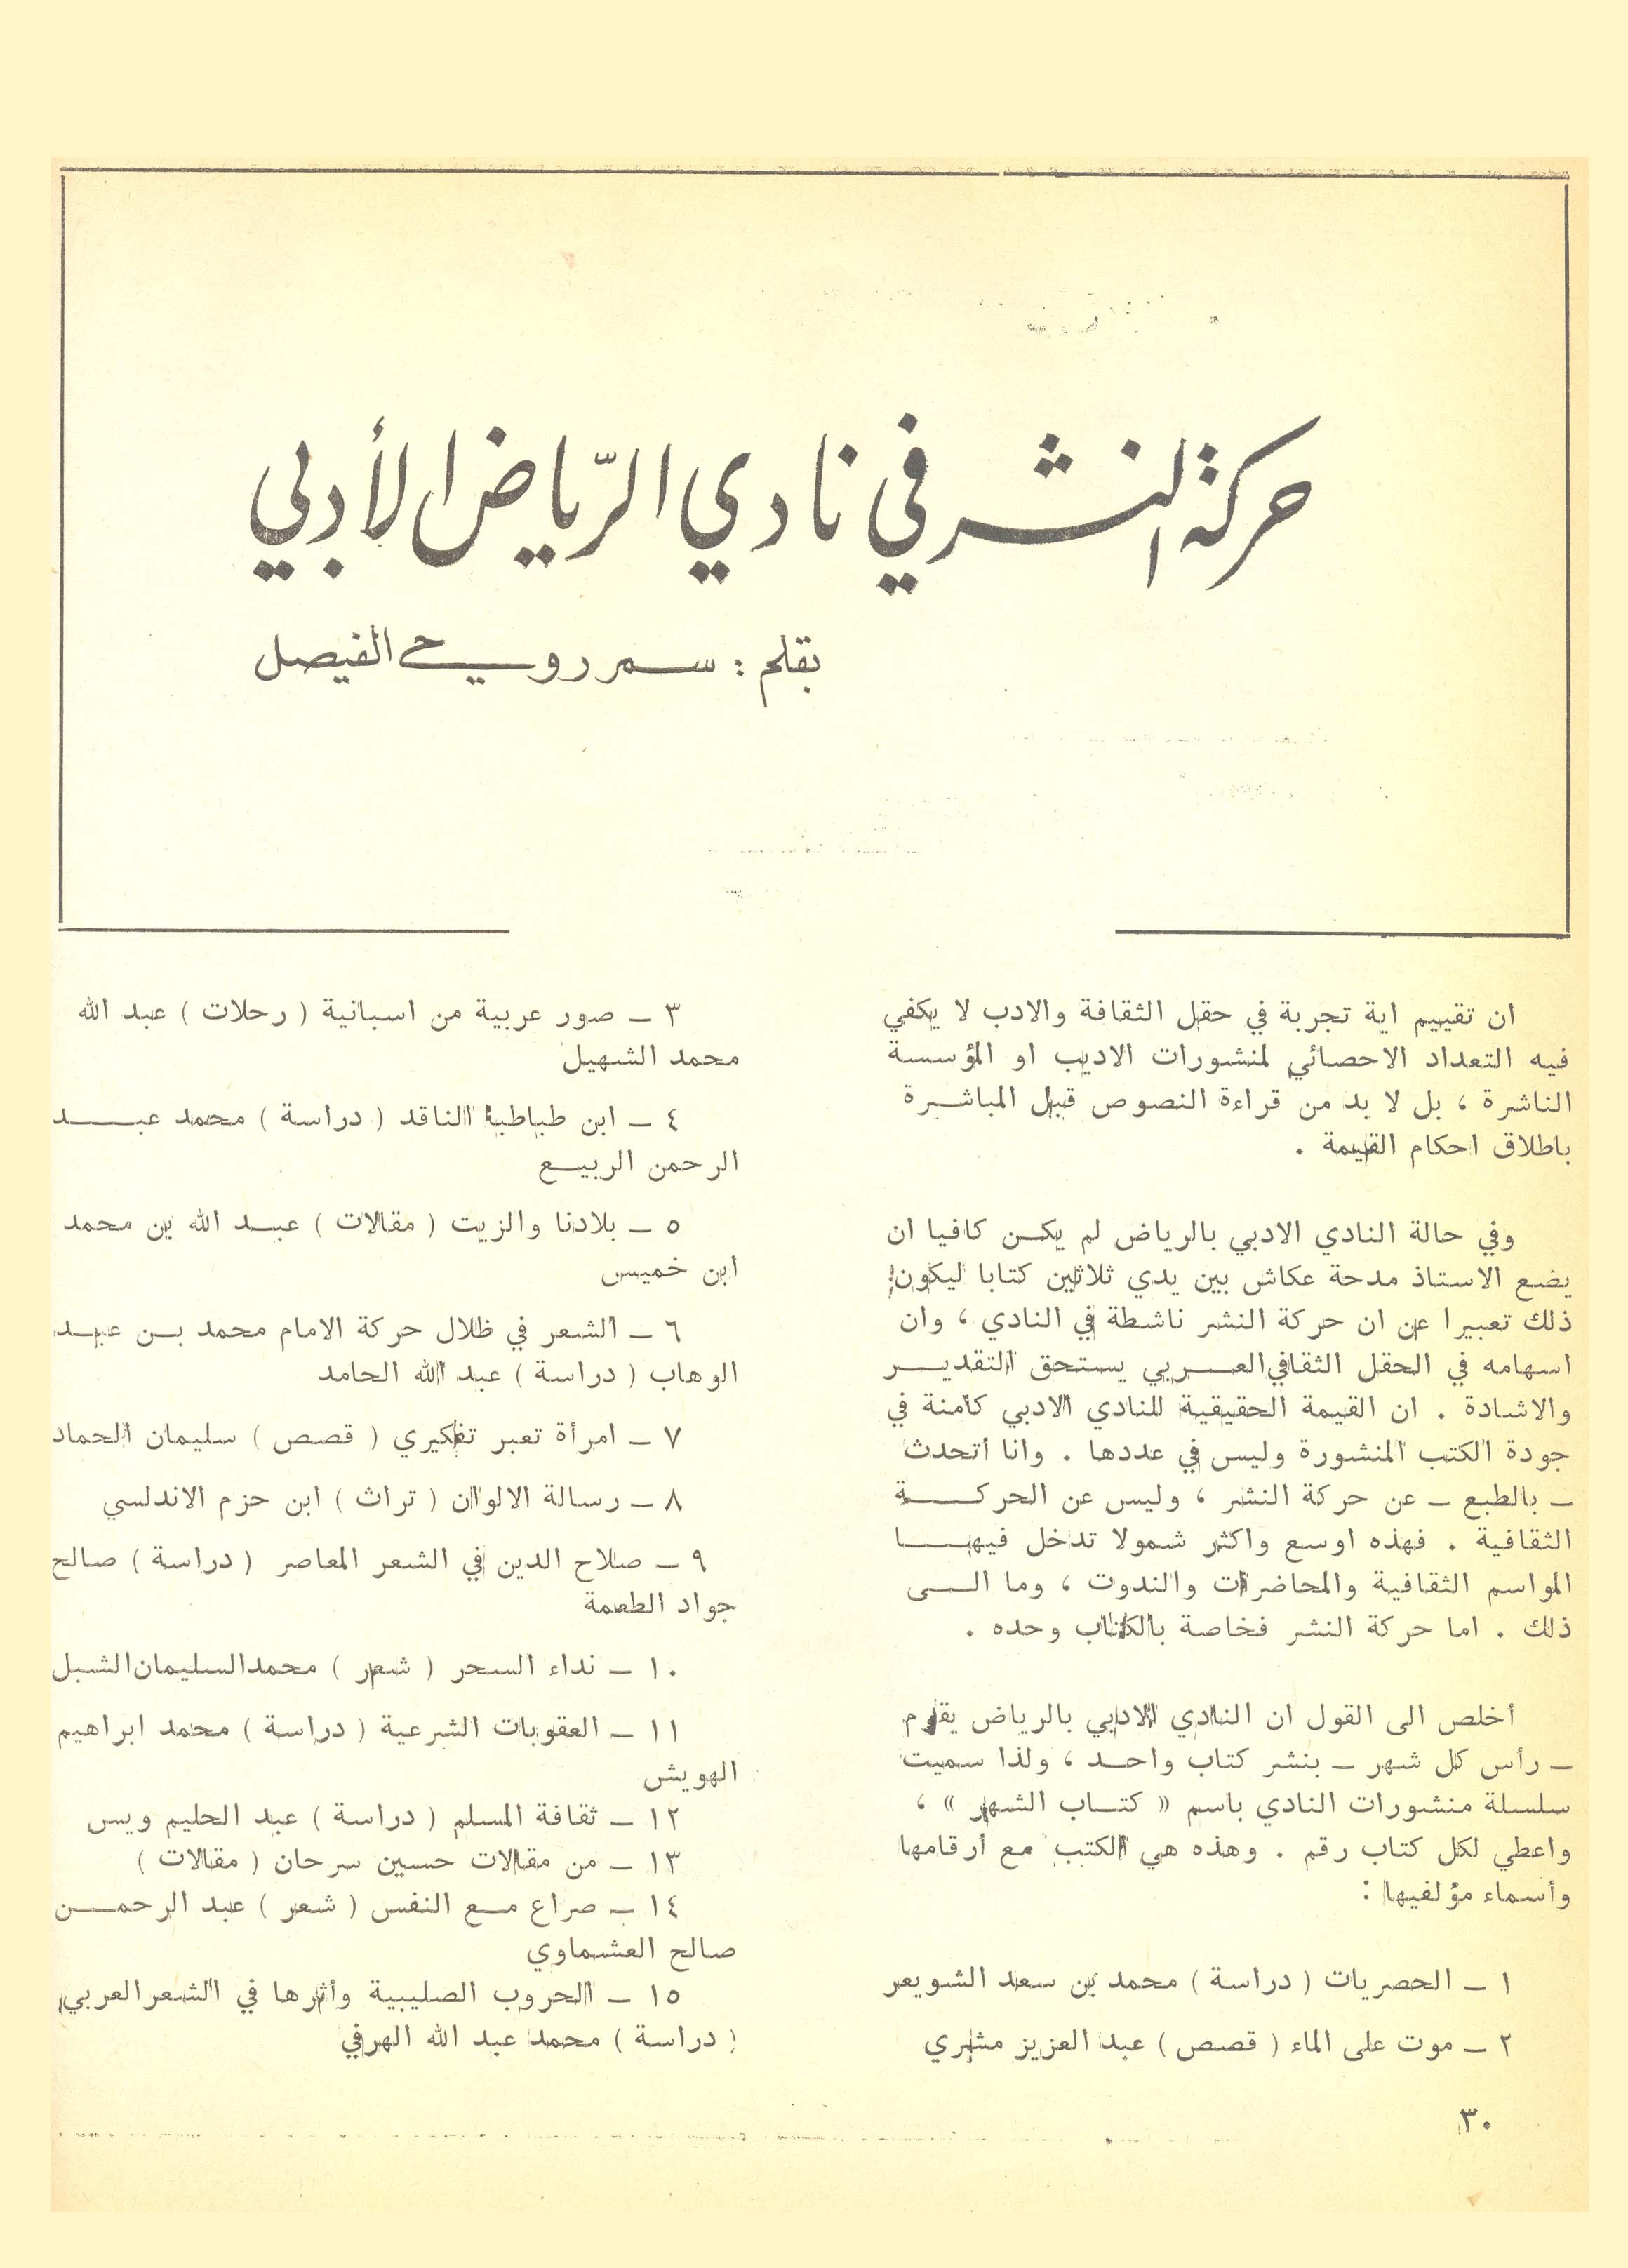 حركة النشر في نادي الرّياض الأدبي
بقلم : سمر روحي الفيصل
ان تقييم اية تجربة في حقل الثقافة والادب لا يكفي
فيه التعداد الاحصائي لمنشورات الاديب او المؤسسة
الناشرة ، بل لا بد من قراءة النصوص قبل المباشرة
باطلاق احكام القيمة .
وفي حالة النادي الادبي بالرياض لم يكن كافيا ان
يضع الاستاذ مدحة عكاش بين يدي ثلاثين كتابا ليكون
ذلك تعبيرا عن ان حركة النشر ناشطة في النادي ، وان
اسهامه في الحقل الثقافي العربي يستحق التقدير
والاشادة . ان القيمة الحقيقية للنادي الادبي كامنة في
جودة الكتب المنشورة وليس في عددها . وانا أتحدث
ـ بالطبع ـ عن حركة النشر ، وليس عن الحركة
الثقافية . فهذه اوسع واكثر شمولا تدخل فيها
المواسم الثقافية والمحاضرات والندوت ، وما الى
ذلك . اما حركة النشر فخاصة بالكتاب وحده .
أخلص الى القول ان النادي الادبي بالرياض يقوم
ـ رأس كل شهر ـ بنشر كتاب واحد ، ولذا سميت
سلسلة منشورات النادي باسم « كتاب الشهر » ،
واعطي لكل كتاب رقم . وهذه هي الكتب مع أرقامها
وأسماء مؤلفيها :
١ ـ الحصريات ( دراسة ) محمد بن سعد الشويعر
٢ ـ موت على الماء ( قصص ) عبد العزيز مشري
٣ ـ صور عربية من اسبانية ( رحلات ) عبد الله
محمد الشهيل
٤ ـ ابن طباطبا الناقد ( دراسة ) محمد عبد
الرحمن الربيع
٥ ـ بلادنا والزيت ( مقالات ) عبد الله بن محمد
ابن خميس
٦ ـ الشعر في ظلال حركة الامام محمد بن عبد
الوهاب ( دراسة ) عبد الله الحامد
٧ ـ امرأة تعبر تفكيري ( قصص ) سليمان الحماد
٨ ـ رسالة الالوان ( تراث ) ابن حزم الاندلسي
٩ ـ صلاح الدين في الشعر المعاصر ( دراسة ) صالح
جواد الطعمة
١٠ ـ نداء السحر ( شعر ) محمد السليمان الشبل
١١ ـ العقوبات الشرعية ( دراسة ) محمد ابراهيم
الهويش
١٢ ـ ثقافة المسلم ( دراسة ) عبد الحليم ويس
١٣ ـ من مقالات حسين سرحان ( مقالات )
١٤ ـ صراع مع النفس ( شعر ) عبد الرحمن
صالح العشماوي
١٥ ـ الحروب الصليبية وأثرها في الشعر العربي
( دراسة ) محمد عبد الله الهرفي
٣٠